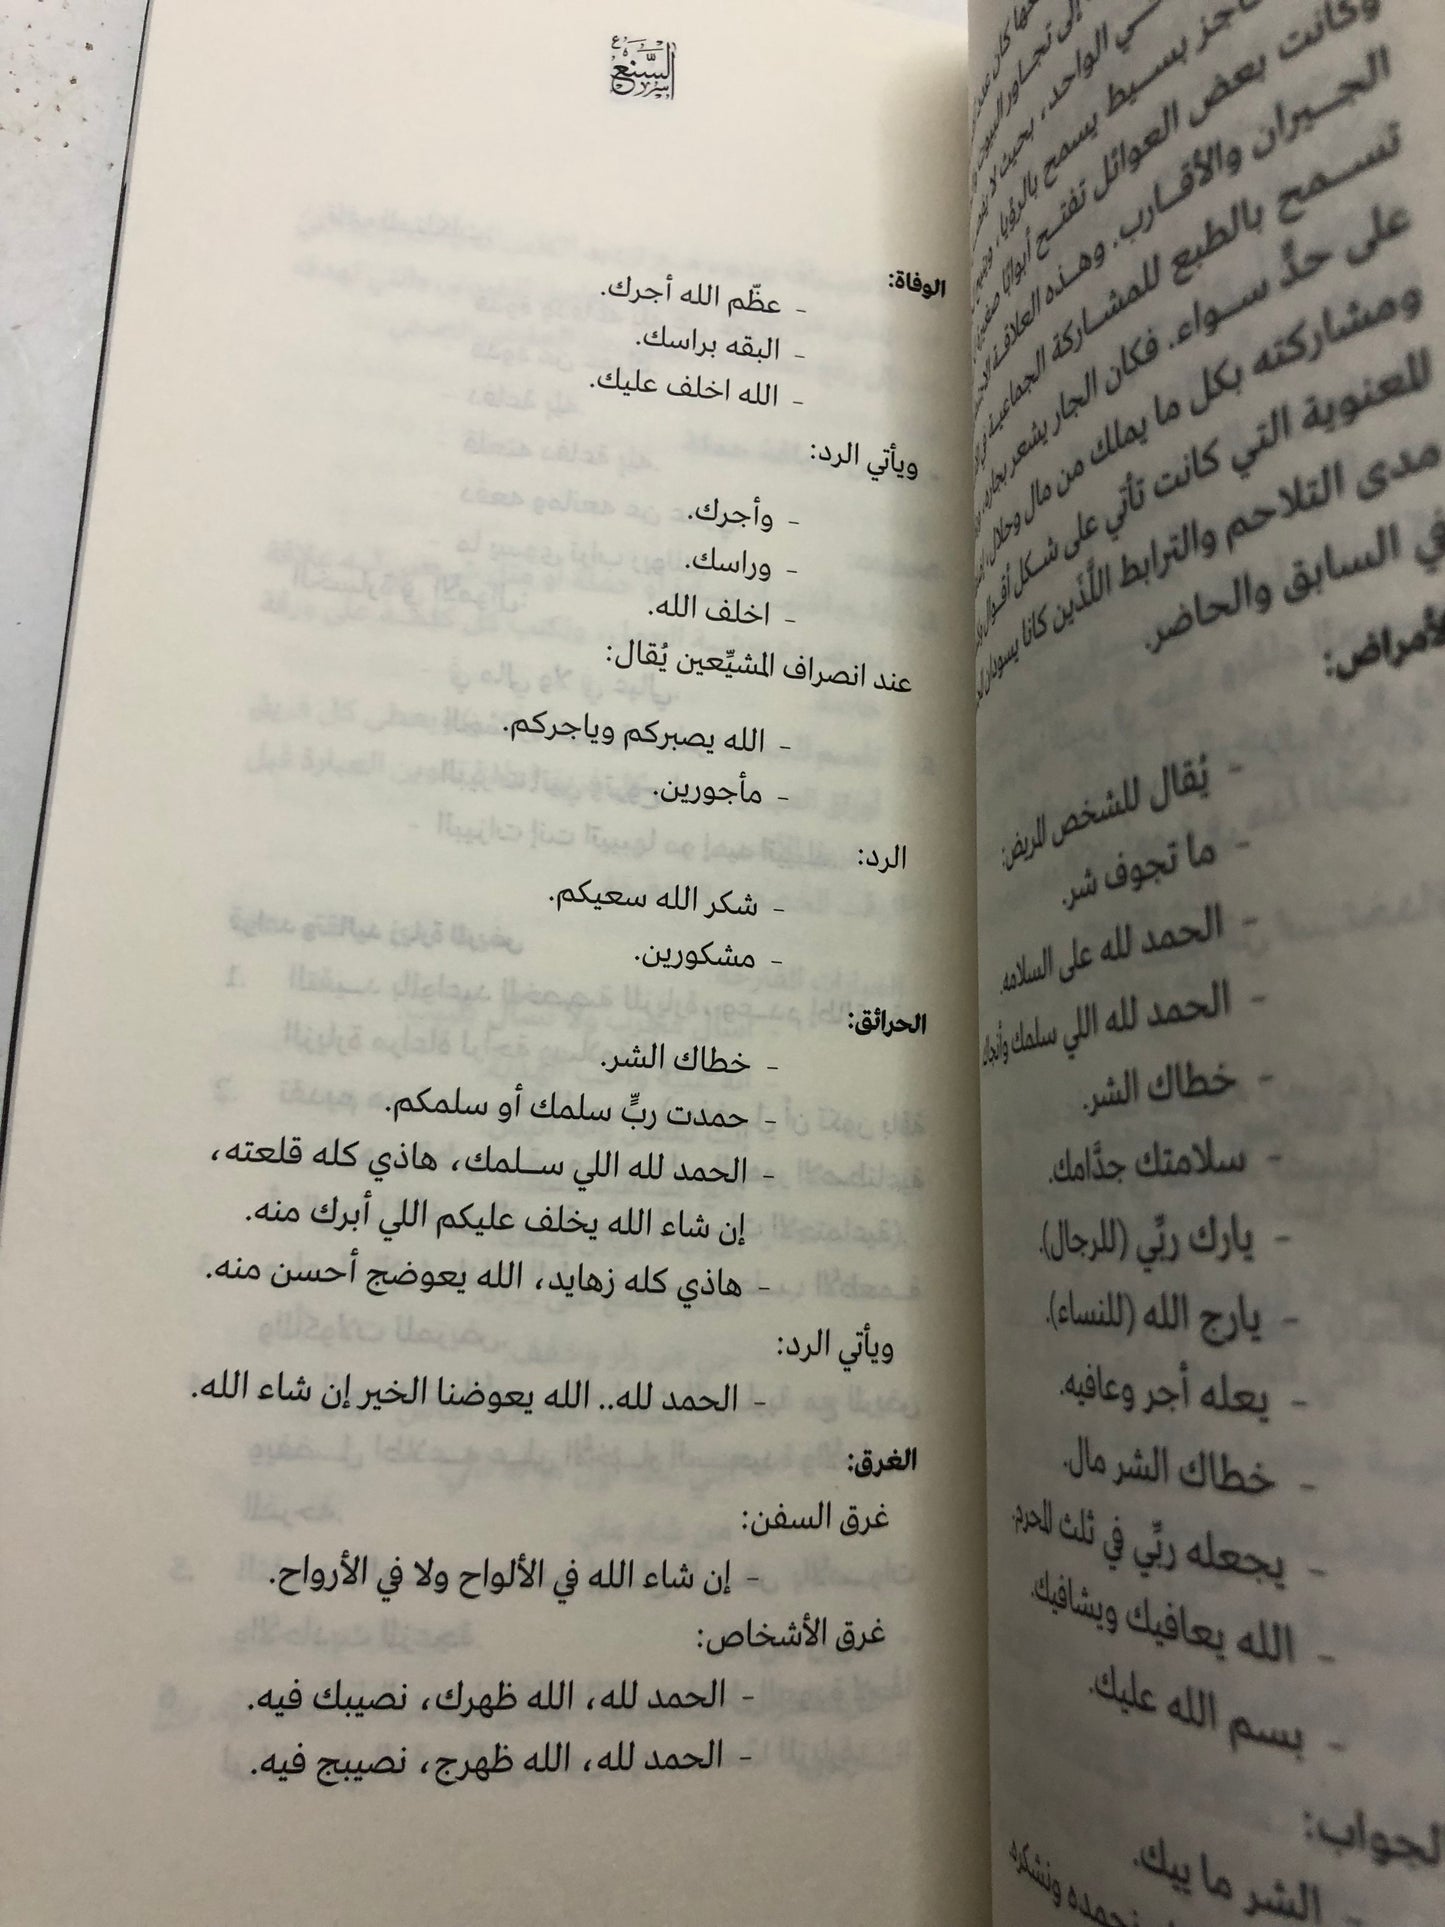 وكانت بعض العوائل تفتح أبوابًا
الجيران والأقارب. وهذه العلاقة
تسمح بالطبع للمشاركة الجماعية
على حدٍّ سواء. فكان الجار يشعر بجاره،
ومشاركته بكل ما يملك من مال وحلال،
للعنوية التي كانت تأتي على شكل أقوال
مدى التلاحم والترابط اللَّذَين كانا يسودان
في السابق والحاضر.
الأمراض:
- يُقال للشخص المريض:
- ما تجوف شر.
- الحمد لله على السلامه.
- الحمد لله اللي سلمك وأنجاك
- خطاك الشر.
- سلامتك جدَّامك.
- يارك ربِّي (للرجال).
- يارج الله (للنساء).
- يعله أجر وعافيه.
- خطاك الشر مال.
- يجعله ربِّي في ثلث المحرم.
- الله يعافيك ويشافيك.
- بسم الله عليك.
الجواب:
- الشر ما ييك.
نحمده ونشكره
السنع
الوفاة:
- عظّم الله أجرك.
- البقه براسك.
- الله اخلف عليك.
ويأتي الرد:
- وأجرك.
- وراسك.
- اخلف الله.
عند انصراف المشيِّعين يُقال:
- الله يصبركم وياجركم.
- مأجورين.
الرد:
- شكر الله سعيكم.
- مشكورين.
الحرائق:
- خطاك الشر.
- حمدت ربٍّ سلمك أو سلمكم.
- الحمد لله اللي سلمك، هاذي كله قلعته،
إن شاء الله يخلف عليكم اللي أبرك منه.
- هاذي كله زهايد، الله يعوضج أحسن منه.
ويأتي الرد:
- الحمد لله.. الله يعوضنا الخير إن شاء الله.
الغرق:
غرق السفن:
- إن شاء الله في الألواح ولا في الأرواح.
غرق الأشخاص:
- الحمد لله، الله ظهرك، نصيبك فيه.
- الحمد لله، الله ظهرج، نصيبج فيه.